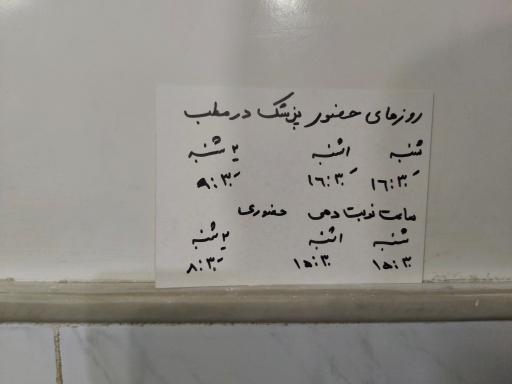 روزهای حضوری پزشک در مطب
شنبه ۱شنبه ۳شنبه
۱۶:۳۰ ۱۶:۳۰ ۹:۳۰
ساعت نوبت دهی حضوری
شنبه ۱شنبه ۳شنبه
۱۵:۳۰ ۱۵:۳۰ ۸:۳۰